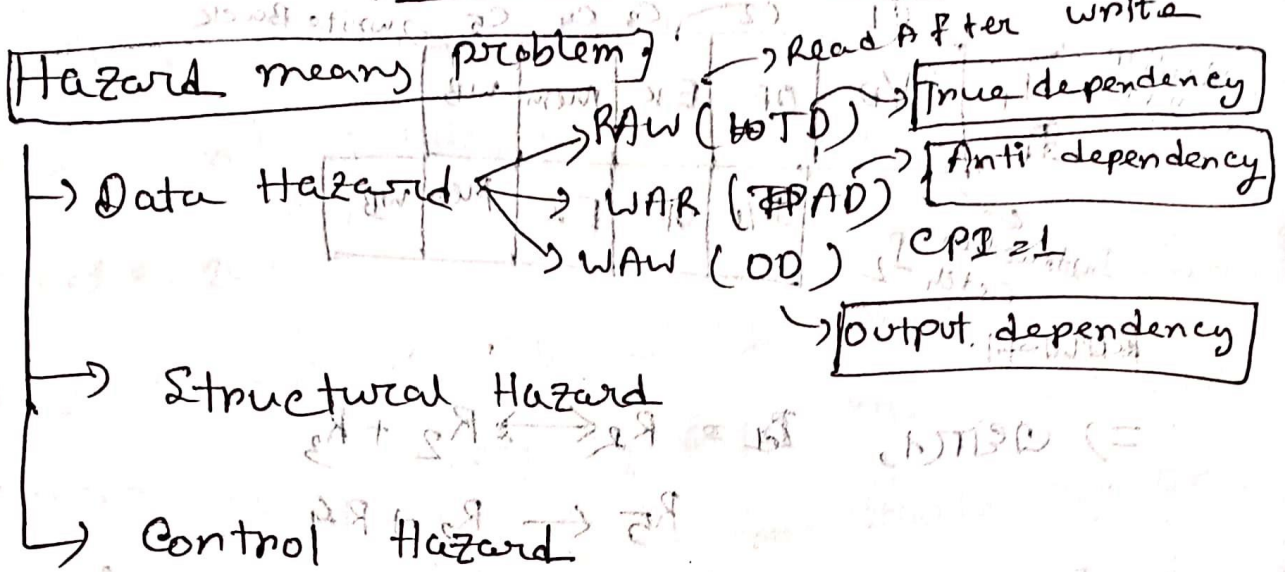 Hazard means problem.
→ Read After write
→ Data Hazard → RAW (TD) → True dependency
→ WAR (AD) → Anti dependency
→ WAW (OD) CPI = 1
→ output dependency
→ Structural Hazard
→ Control Hazard